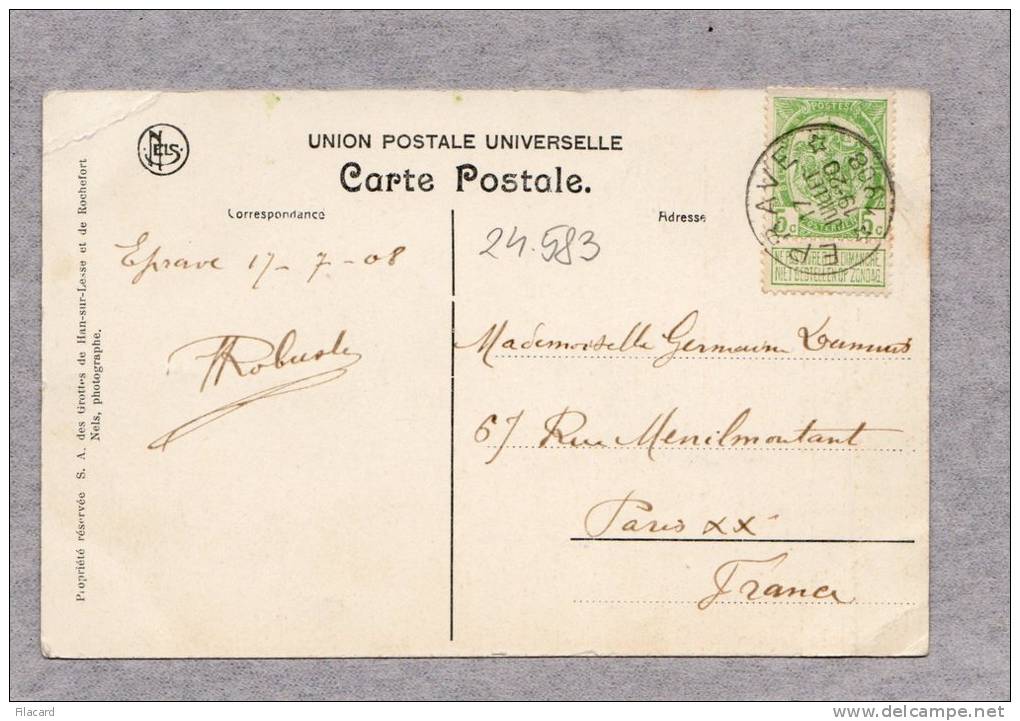 NELS
UNION POSTALE UNIVERSELLE
Carte Postale.
Correspondance
Adresse
Eprave 17-7-08
24.583
Mademoiselle Germaine
67 Rue Menilmontant
Paris XX
France
Propriété réservée S. A. des Grottes de Han-sur-Lesse et de Rochefort
Nels, photographe.
POSTES
5c 5c
EPRAVE
17
JUILLET
1908
NIET BESTELLEN OP ZONDAG
Filacard
www.delcampe.net